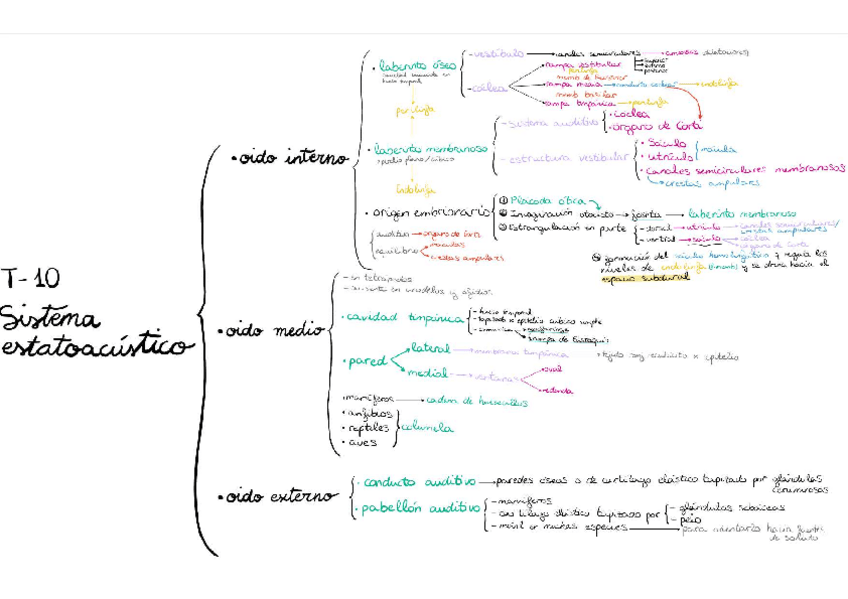 T-10
Sistema
estatoacústico
• oido interno
• laberinto óseo
- vestíbulo → canales semicirculares
- cóclea
rampa vestibular
perilinfa
rampa media → conducto coclear → endolinfa
rampa timpánica → perilinfa
perilinfa
• laberinto membranoso
endolinfa
- sistema auditivo
• cóclea
• órgano de Corti
- estructura vestibular
• Sáculo
• utrículo
mácula
• canales semicirculares membranosos
→ crestas ampulares
• origen embrionario
auditivo → órgano de Corti
equilibrio
máculas
crestas ampulares
① Placoda ótica
② Invaginación → foseta → laberinto membranoso
③ Estrangulación en parte
- dorsal → utrículo → canales semicirculares/
crestas ampulares
- ventral → sáculo → cóclea
órgano de Corti
④ formación del y regula los
niveles de endolinfa y se drena hacia el
espacio subdural
• oido medio
- en tetrápodos
- ausente en urodelos y ofidios
• cavidad timpánica
- hueso temporal
trompa de Eustaquio
• pared
lateral → membrana timpánica
medial → ventanas
oval
redonda
• mamíferos → cadena de huesecillos
• anfibios
• reptiles
• aves
columela
• oido externo
• conducto auditivo → paredes óseas o de cartílago elástico tapizado por glándulas
ceruminosas
• pabellón auditivo
- mamíferos
- cartílago elástico tapizado por
- glándulas sebáceas
- pelo
- móvil en muchas especies → para orientarlo hacia fuente
de sonido